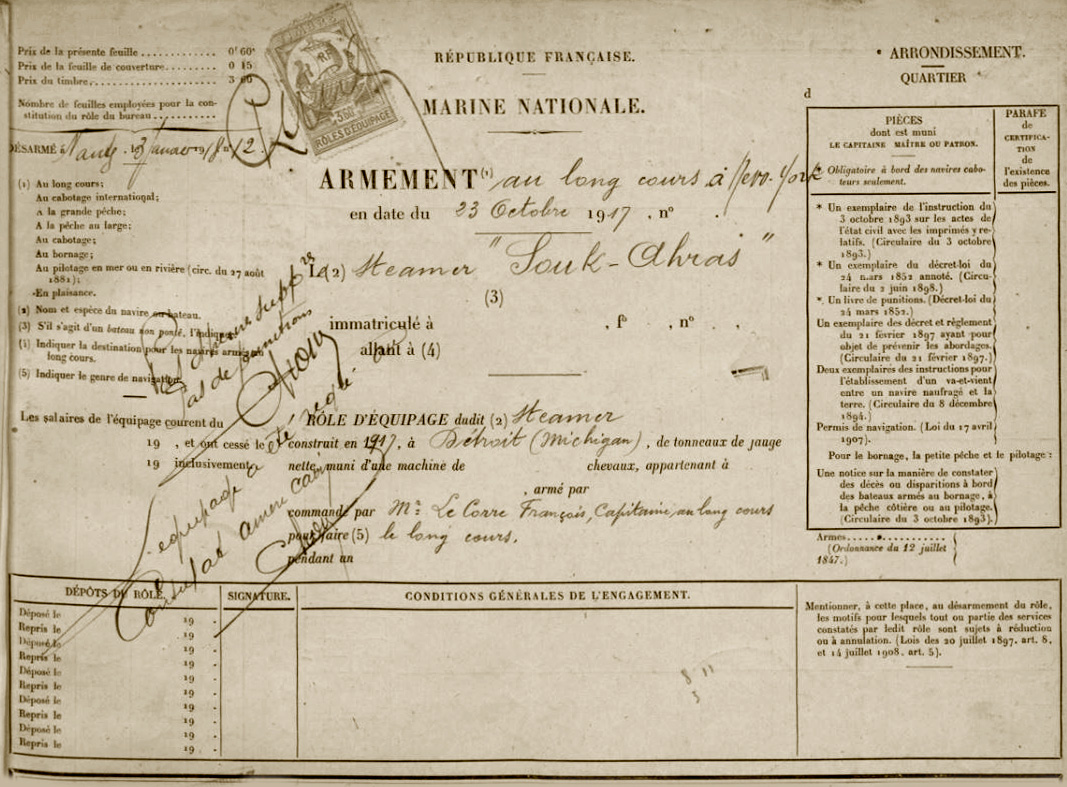 Prix de la présente feuille ............ 0ᶠ 60ᶜ
Prix de la feuille de couverture........ 0 15
Prix du timbre.......................... 3 60
Nombre de feuilles employées pour la con-
stitution du rôle du bureau ............
DÉSARMÉ à Nantes
12
3.60
RÔLES D'ÉQUIPAGE
RÉPUBLIQUE FRANÇAISE.
MARINE NATIONALE.
ARMEMENT⁽¹⁾ au long cours à New-York
en date du 23 Octobre 1917 , nº .
Le (2) Steamer "Souk-Ahras"
(3)
immatriculé à , fº , nº . .
allant à (4)
(1) Au long cours;
Au cabotage international;
A la grande pêche;
A la pêche au large;
Au cabotage;
Au bornage;
Au pilotage en mer ou en rivière (circ. du 27 août
1881);
En plaisance.
(2) Nom et espèce du navire ou bateau.
(3) S'il s'agit d'un bateau non ponté, l'indiquer
(4) Indiquer la destination pour les navires armés au
long cours.
(5) Indiquer le genre de navigation.
pas de punitions
Les salaires de l'équipage courent du
19 , et ont cessé le
19 inclusivement.
équipage a été
Consulat
RÔLE D'ÉQUIPAGE dudit (2) Steamer
construit en 1917, à Détroit (Michigan) , de tonneaux de jauge
nette, muni d'une machine de chevaux, appartenant à
, armé par
commandé par Mʳ Le Corre François, Capitaine au long cours
pour faire (5) le long cours.
pendant un
* ARRONDISSEMENT.
QUARTIER
d
PIÈCES
dont est muni
LE CAPITAINE MAÎTRE OU PATRON.
* Obligatoire à bord des navires cabo-
teurs seulement.
PARAFE
de
CERTIFICA-
TION
de
l'existence
des pièces.
* Un exemplaire de l'instruction du
3 octobre 1893 sur les actes de
l'état civil avec les imprimés y re-
latifs. (Circulaire du 3 octobre
1893.)
* Un exemplaire du décret-loi du
24 mars 1852 annoté. (Circu-
laire du 2 juin 1898.)
*. Un livre de punitions. (Décret-loi du
24 mars 1852.)
Un exemplaire des décret et règlement
du 21 février 1897 ayant pour
objet de prévenir les abordages.
(Circulaire du 21 février 1897.)
Deux exemplaires des instructions pour
l'établissement d'un va-et-vient
entre un navire naufragé et la
terre. (Circulaire du 8 décembre
1894.)
Permis de navigation. (Loi du 17 avril
1907).
Pour le bornage, la petite pêche et le pilotage :
Une notice sur la manière de constater
des décès ou disparitions à bord
des bateaux armés au bornage, à
la pêche côtière ou au pilotage.
(Circulaire du 3 octobre 1893).
Armes...............
(Ordonnance du 12 juillet
1847.)
DÉPÔTS DU RÔLE.
SIGNATURE.
CONDITIONS GÉNÉRALES DE L'ENGAGEMENT.
Déposé le 19 .
Repris le 19 .
Déposé le 19 .
Repris le 19 .
Déposé le 19 .
Repris le 19 .
Déposé le 19 .
Repris le 19 .
Déposé le 19 .
Repris le 19 .
8 11
3
Mentionner, à cette place, au désarmement du rôle,
les motifs pour lesquels tout ou partie des services
constatés par ledit rôle sont sujets à réduction
ou à annulation. (Lois des 20 juillet 1897, art. 8,
et 14 juillet 1908, art. 5).